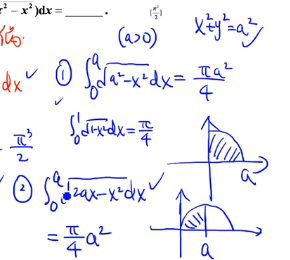 x² − x²)dx = ______.
[π²/2]
(a>0)
x²+y²=a²
dx
① ∫₀ᵃ √(a²−x²) dx = πa²/4
∫₀¹ √(1−x²) dx = π/4
π³/2
a
② ∫₀ᵃ √(2ax−x²) dx
= π/4 a²
a